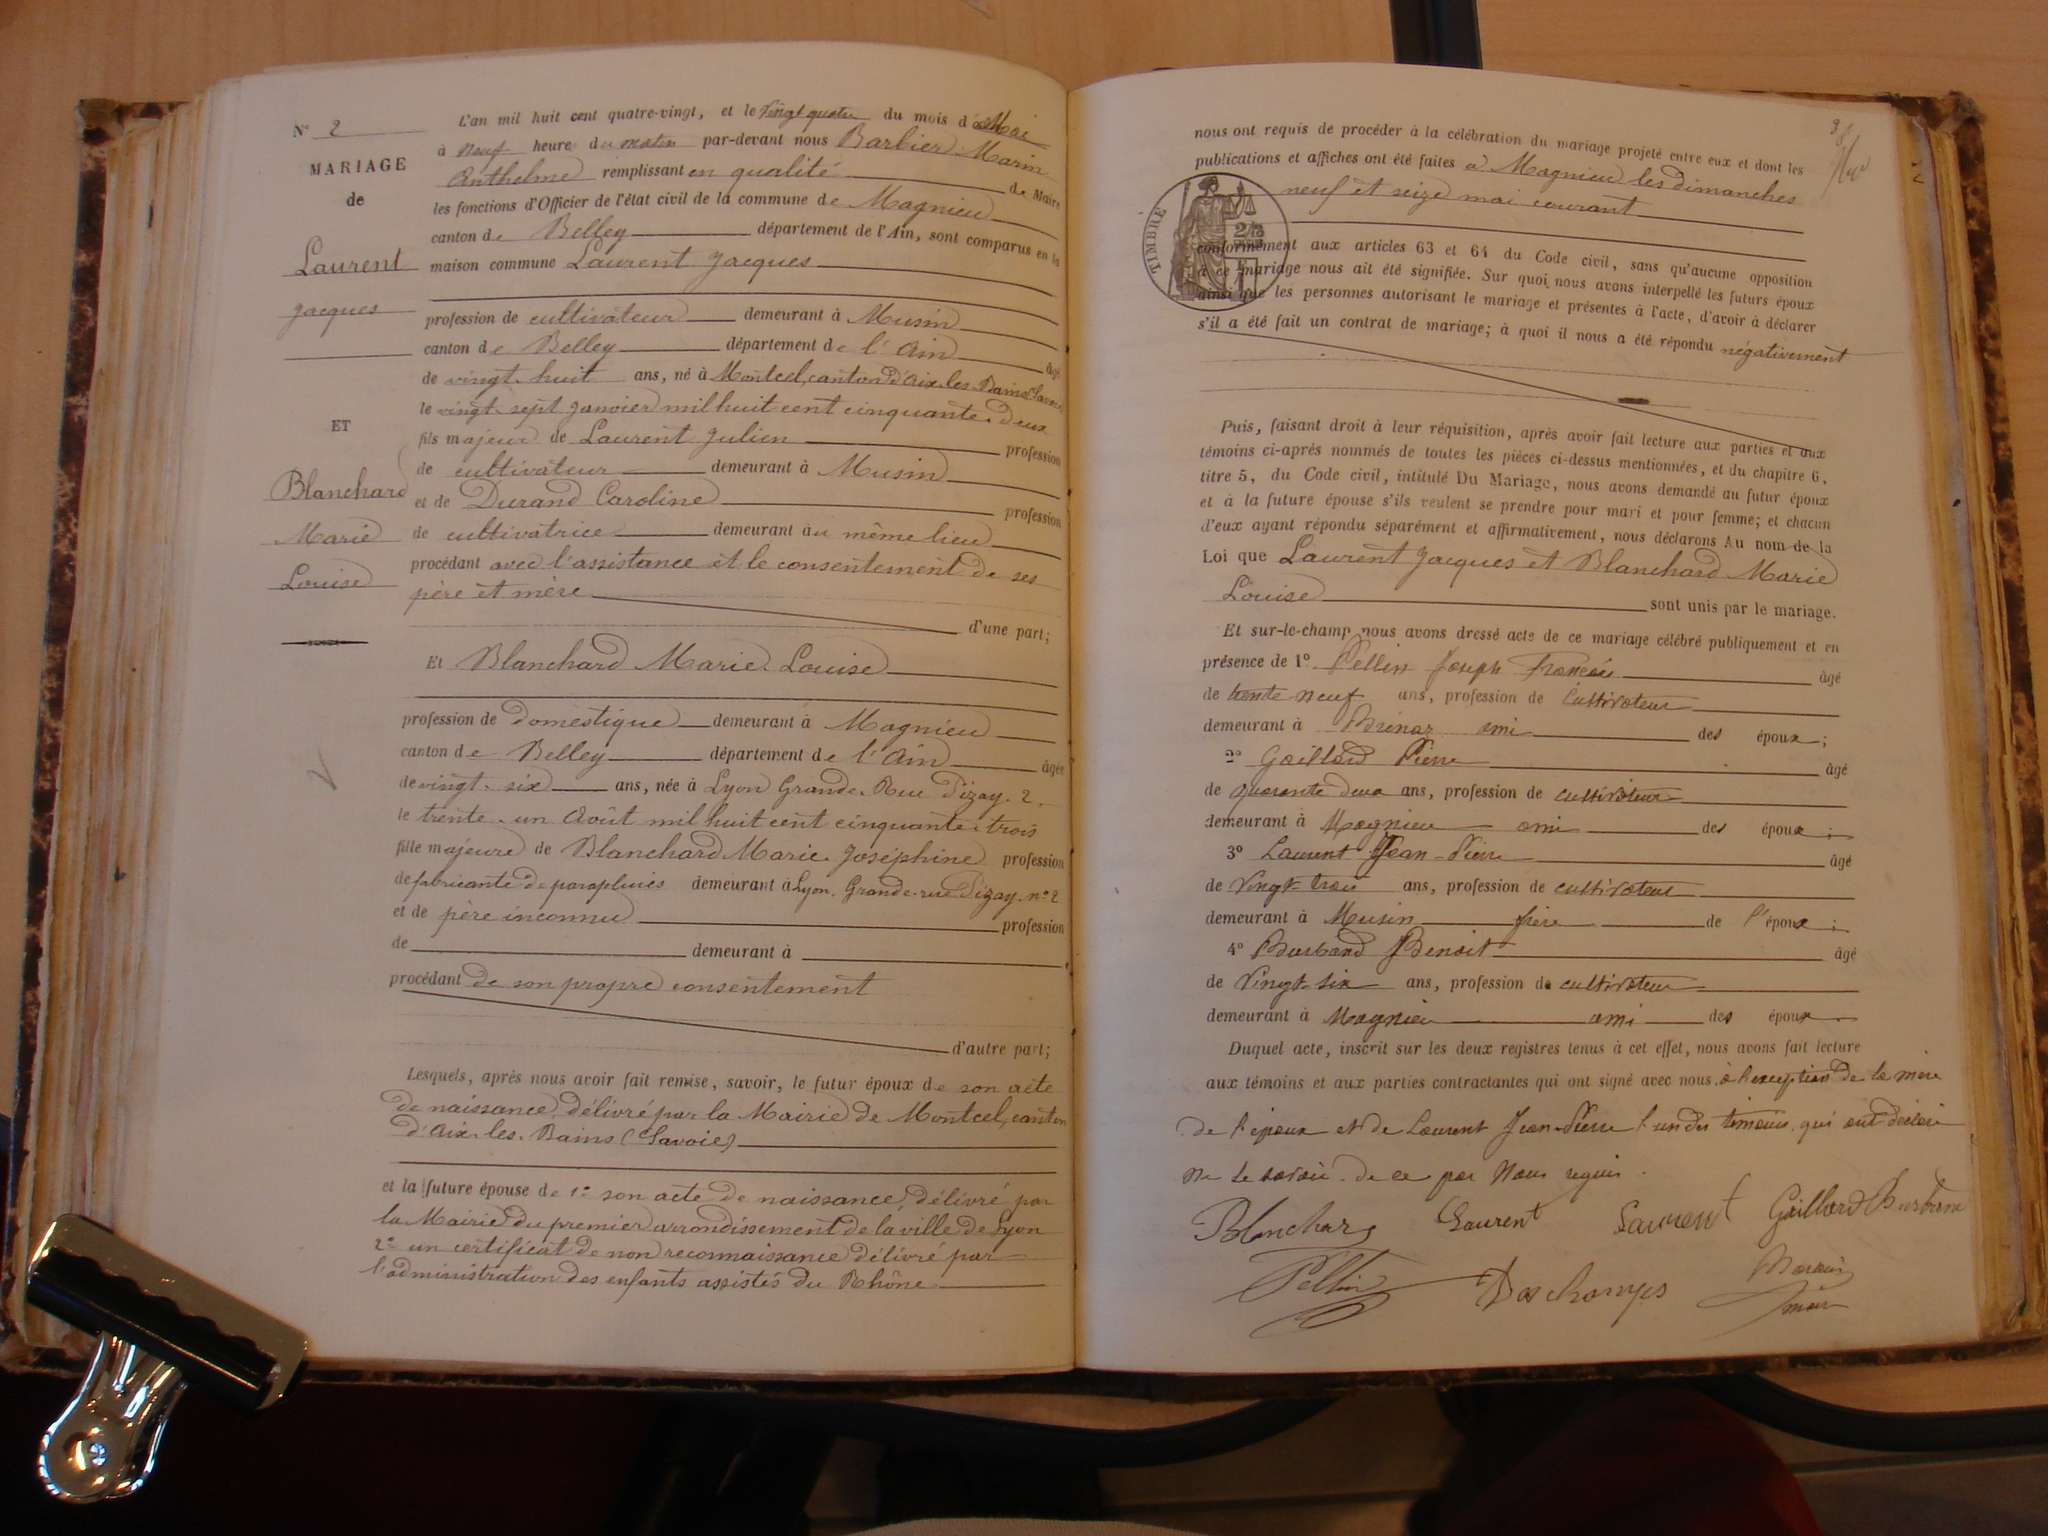 N° 2
MARIAGE
de
Laurent
Jacques
ET
Blanchard
Marie
Louise
L'an mil huit cent quatre-vingt, et le vingt quatre du mois de Mai
à neuf heure du matin par-devant nous Barbier Marin
Anthelme remplissant en qualité de Maire
les fonctions d'Officier de l'état civil de la commune de Magnieu
canton de Belley département de l'Ain, sont comparus en la
maison commune Laurent Jacques
profession de cultivateur demeurant à Musin
canton de Belley département de l'Ain âgé
de vingt-huit ans, né à Montcel, canton d'Aix-les-Bains (Savoie)
le vingt-sept Janvier mil huit cent cinquante-deux
fils majeur de Laurent Julien profession
de cultivateur demeurant à Musin
et de Durand Caroline profession
de cultivatrice demeurant au même lieu
procédant avec l'assistance et le consentement de ses
père et mère
d'une part;
Et Blanchard Marie-Louise
profession de domestique demeurant à Magnieu
canton de Belley département de l'Ain âgée
de vingt-six ans, née à Lyon Grande-Rue Pizay. 2.
le trente-un Août mil huit cent cinquante-trois
fille majeure de Blanchard Marie Joséphine profession
de fabricante de parapluies demeurant à Lyon. Grande-rue Pizay. n° 2
et de père inconnu profession
de demeurant à
procédant de son propre consentement
d'autre part;
Lesquels, après nous avoir fait remise, savoir, le futur époux de son acte
de naissance, délivré par la Mairie de Montcel, canton
d'Aix-les-Bains (Savoie)
et la future épouse de 1° son acte de naissance, délivré par
la Mairie du premier arrondissement de la ville de Lyon
2° un certificat de non reconnaissance délivré par
l'administration des enfants assistés du Rhône
nous ont requis de procéder à la célébration du mariage projeté entre eux et dont les
publications et affiches ont été faites à Magnieu les dimanches
neuf et seize mai courant
TIMBRE
conformément aux articles 63 et 64 du Code civil, sans qu'aucune opposition
à ce mariage nous ait été signifiée. Sur quoi nous avons interpellé les futurs époux
ainsi que les personnes autorisant le mariage et présentes à l'acte, d'avoir à déclarer
s'il a été fait un contrat de mariage; à quoi il nous a été répondu négativement
Puis, faisant droit à leur réquisition, après avoir fait lecture aux parties et aux
témoins ci-après nommés de toutes les pièces ci-dessus mentionnées, et du chapitre 6,
titre 5, du Code civil, intitulé Du Mariage, nous avons demandé au futur époux
et à la future épouse s'ils veulent se prendre pour mari et pour femme; et chacun
d'eux ayant répondu séparément et affirmativement, nous déclarons Au nom de la
Loi que Laurent Jacques et Blanchard Marie
Louise sont unis par le mariage.
Et sur-le-champ nous avons dressé acte de ce mariage célébré publiquement et en
présence de 1° Pellin Joseph François âgé
de trente neuf ans, profession de cultivateur
demeurant à ami des époux;
2° Gaillard Pierre âgé
de quarante deux ans, profession de cultivateur
demeurant à Magnieu ami des époux;
3° Laurent Jean-Pierre âgé
de vingt-trois ans, profession de cultivateur
demeurant à Musin frère de l'époux;
4° Burband Benoit âgé
de vingt-six ans, profession de cultivateur
demeurant à Magnieu ami des époux.
Duquel acte, inscrit sur les deux registres tenus à cet effet, nous avons fait lecture
aux témoins et aux parties contractantes qui ont signé avec nous, à l'exception de la mère
de l'époux et de Laurent Jean-Pierre l'un des témoins qui ont déclaré
ne le savoir de ce par nous requis.
Blanchard Laurent Laurent Gaillard Burband
Pellin Deschamps